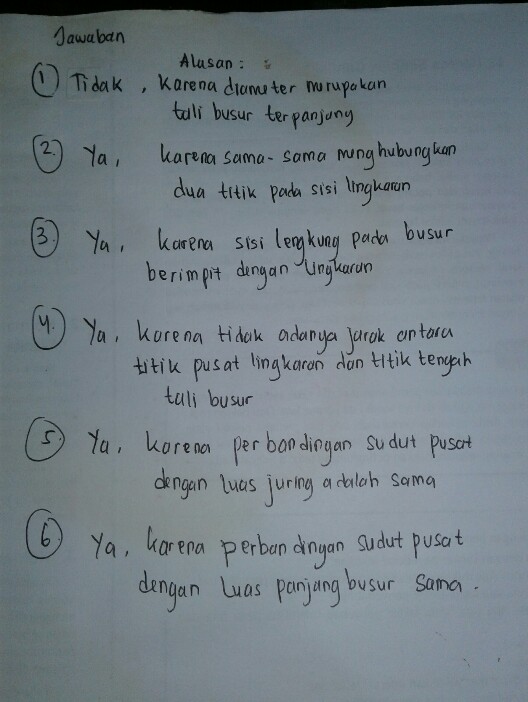 Jawaban
Alasan :
① Tidak , karena diameter merupakan
tali busur terpanjang
② Ya, karena sama-sama menghubungkan
dua titik pada sisi lingkaran
③ Ya, karena sisi lengkung pada busur
berimpit dengan lingkaran
④ Ya, karena tidak adanya jarak antara
titik pusat lingkaran dan titik tengah
tali busur
⑤ Ya, karena perbandingan sudut pusat
dengan luas juring adalah sama
⑥ Ya, karena perbandingan sudut pusat
dengan luas panjang busur sama.